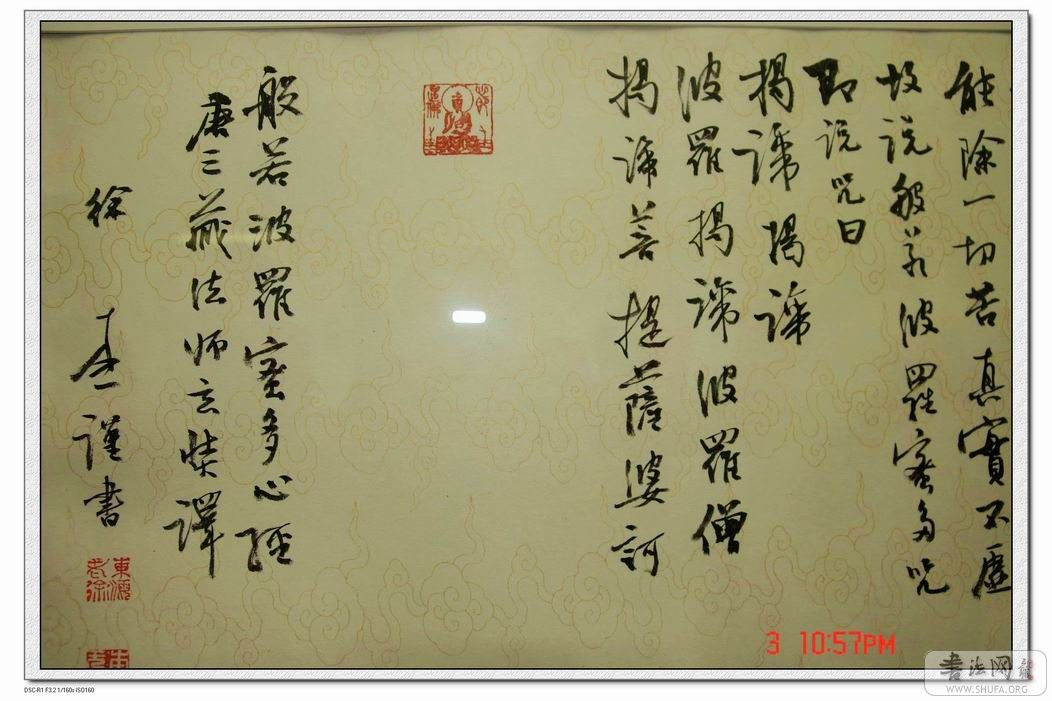 能除一切苦真實不虛
故说般若波羅蜜多咒
即说咒曰
揭諦揭諦
波羅揭諦波羅僧
揭諦菩提薩婆訶
般若波羅蜜多心經
唐三藏法師玄奘譯
徐 謹書
3 10:57PM
書法网
WWW.SHUFA.ORG
DSC-R1 F3.2 1/160s ISO160